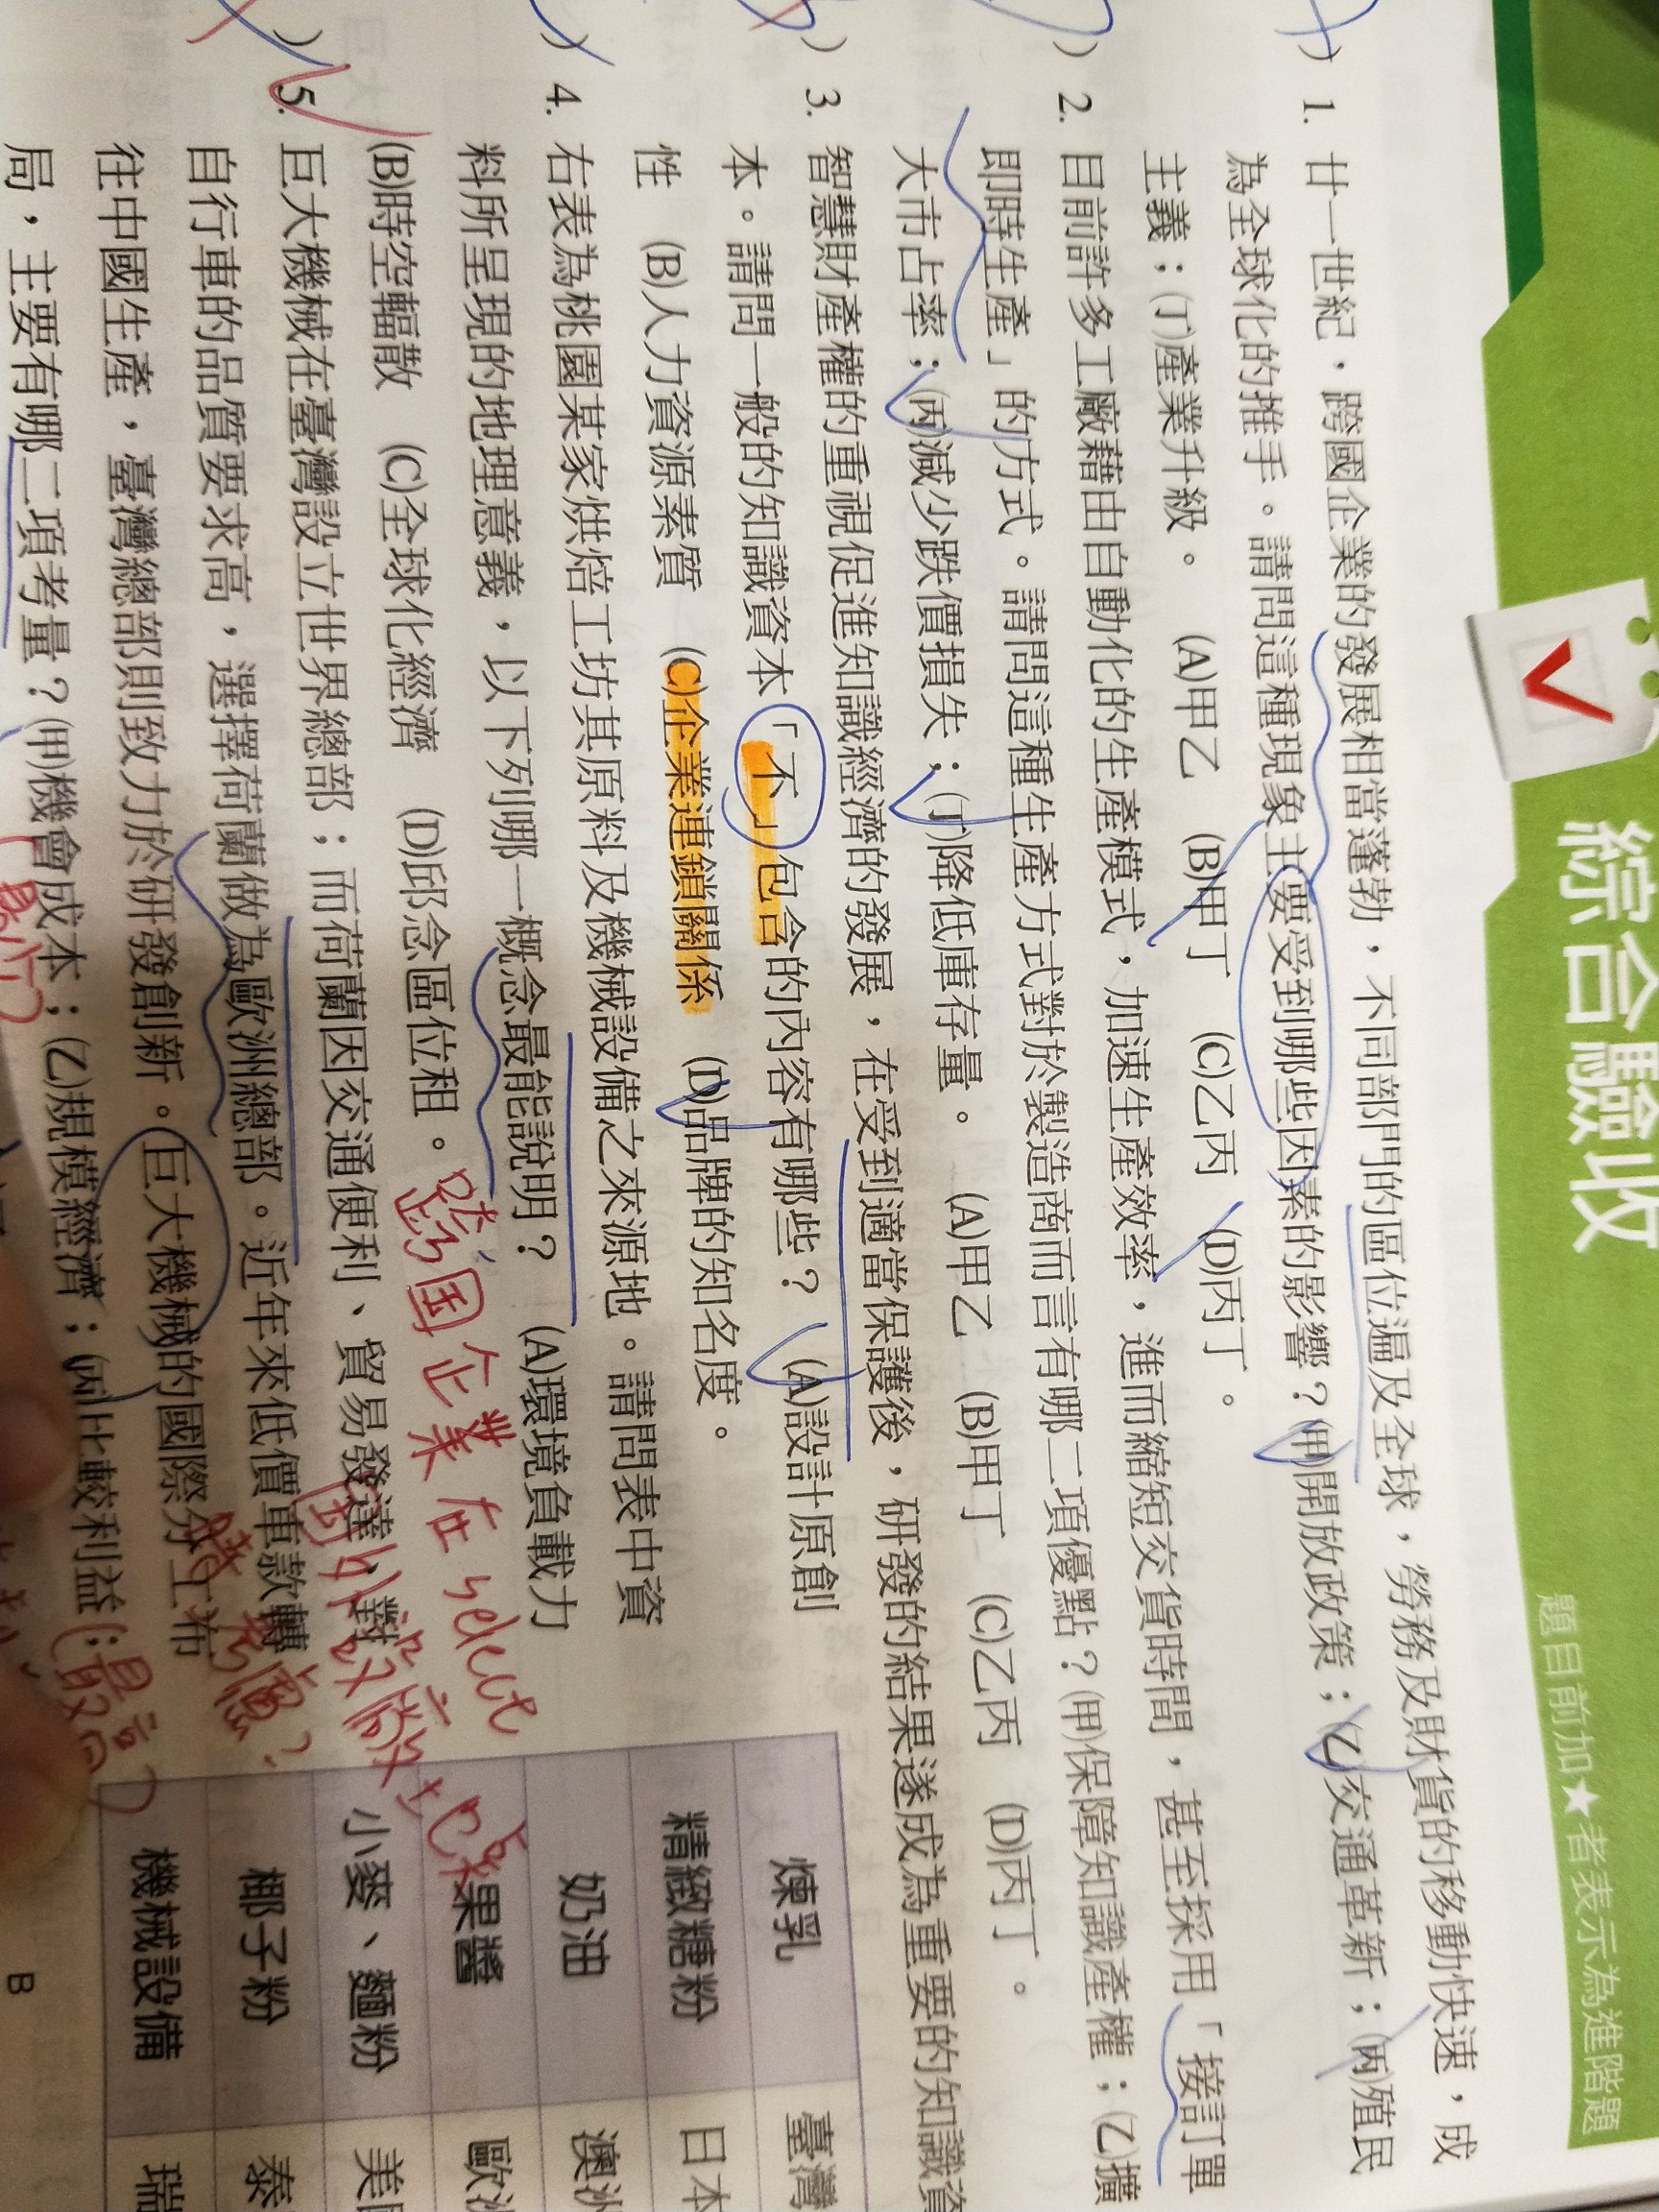 綜合驗收
題目前加★者表示為進階題
) 1. 廿一世紀，跨國企業的發展相當蓬勃，不同部門的區位遍及全球，勞務及財貨的移動快速，成
為全球化的推手。請問這種現象主要受到哪些因素的影響？(甲)開放政策；(乙)交通革新；(丙)殖民
主義；(丁)產業升級。 (A)甲乙 (B)甲丁 (C)乙丙 (D)丙丁。
) 2. 目前許多工廠藉由自動化的生產模式，加速生產效率，進而縮短交貨時間，甚至採用「接訂單
即時生產」的方式。請問這種生產方式對於製造商而言有哪二項優點？(甲)保障知識產權；(乙)擴
大市占率；(丙)減少跌價損失；(丁)降低庫存量。 (A)甲乙 (B)甲丁 (C)乙丙 (D)丙丁。
) 3. 智慧財產權的重視促進知識經濟的發展，在受到適當保護後，研發的結果遂成為重要的知識資
本。請問一般的知識資本「不」包含的內容有哪些？ (A)設計原創
性 (B)人力資源素質 (C)企業連鎖關係 (D)品牌的知名度。
) 4. 右表為桃園某家烘焙工坊其原料及機械設備之來源地。請問表中資
料所呈現的地理意義，以下列哪一概念最能說明？ (A)環境負載力
(B)時空輻散 (C)全球化經濟 (D)邱念區位租。
跨国企業在select
国外設廠
) 5. 巨大機械在臺灣設立世界總部；而荷蘭因交通便利、貿易發達，對
自行車的品質要求高，選擇荷蘭做為歐洲總部。近年來低價車款轉
往中國生產，臺灣總部則致力於研發創新。巨大機械的國際分工布
局，主要有哪二項考量？(甲)機會成本；(乙)規模經濟；(丙)比較利益；
(最高)
煉乳 臺灣
精緻糖粉 日本
奶油 澳洲
果醬 歐洲
小麥、麵粉 美
椰子粉 泰
機械設備 瑞
B